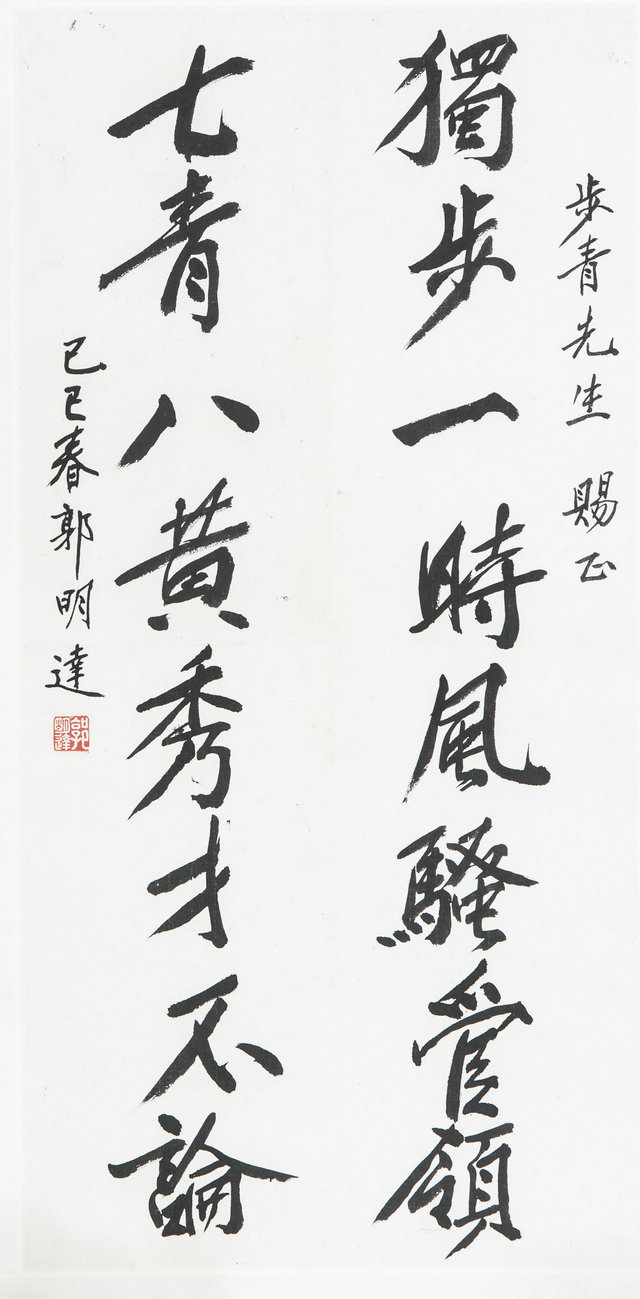 步青先生 賜正
獨步一時風騷管領
七青八黄秀才不論
己巳春郭明達
郭明達